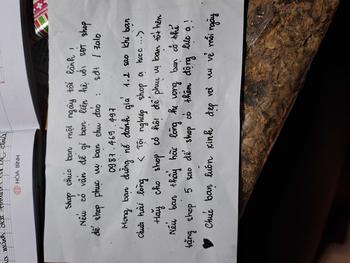 Shop chúc bạn một ngày tốt lành,
Nếu có vấn đề gì bạn liên hệ với SĐT shop
để shop phục vụ bạn chu đáo: sđt / zalo
0987 469 497
Mong bạn đừng nỡ đánh giá 1.2 sao khi bạn
chưa hài lòng < Tội nghiệp shop ạ hccc...>
Hãy cho shop cơ hội để phục vụ bạn tốt hơn
Nếu bạn thấy hài lòng hi vọng bạn có thể
tặng shop 5 sao để shop có thêm động lực ạ!
♥ Chúc bạn luôn xinh đẹp và vui vẻ mỗi ngày
HÒA BÌNH